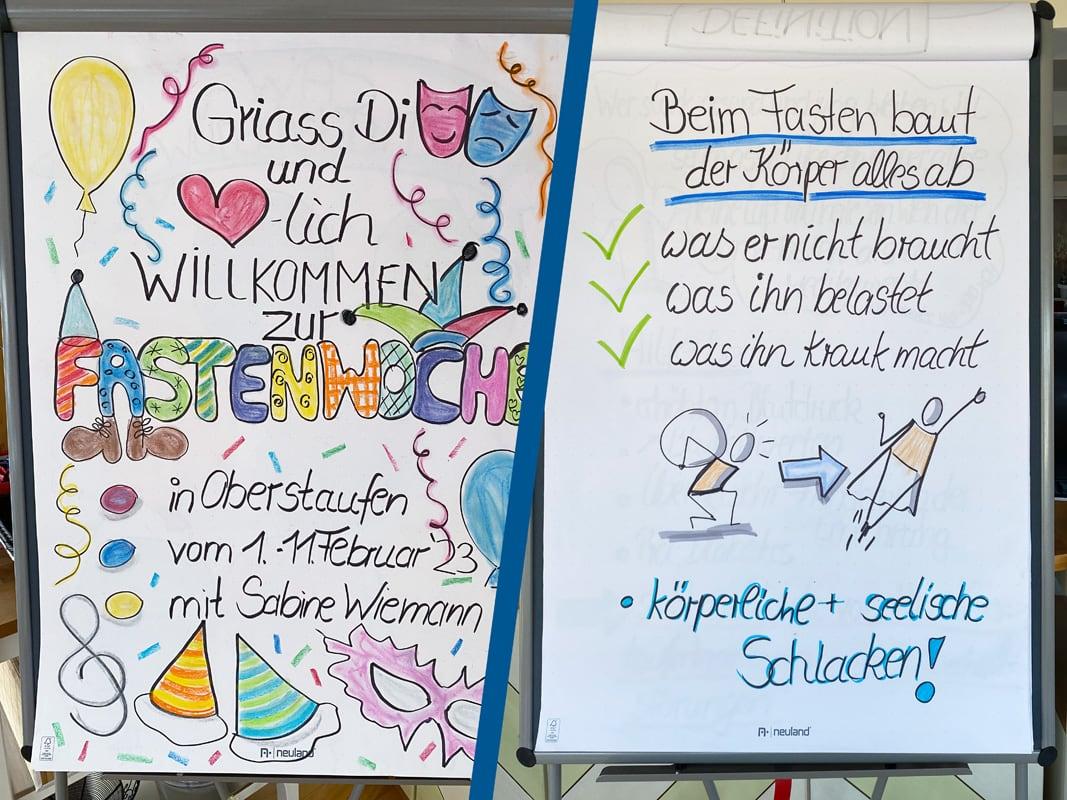 Griass Di
und
-lich
WILLKOMMEN
zur
FASTENWOCHE
in Oberstaufen
vom 1.-11. Februar '23
mit Sabine Wiemann
neuland
DEFINITION
Beim Fasten baut
der Körper alles ab
was er nicht braucht
was ihn belastet
was ihn krank macht
• körperliche + seelische
Schlacken!
neuland